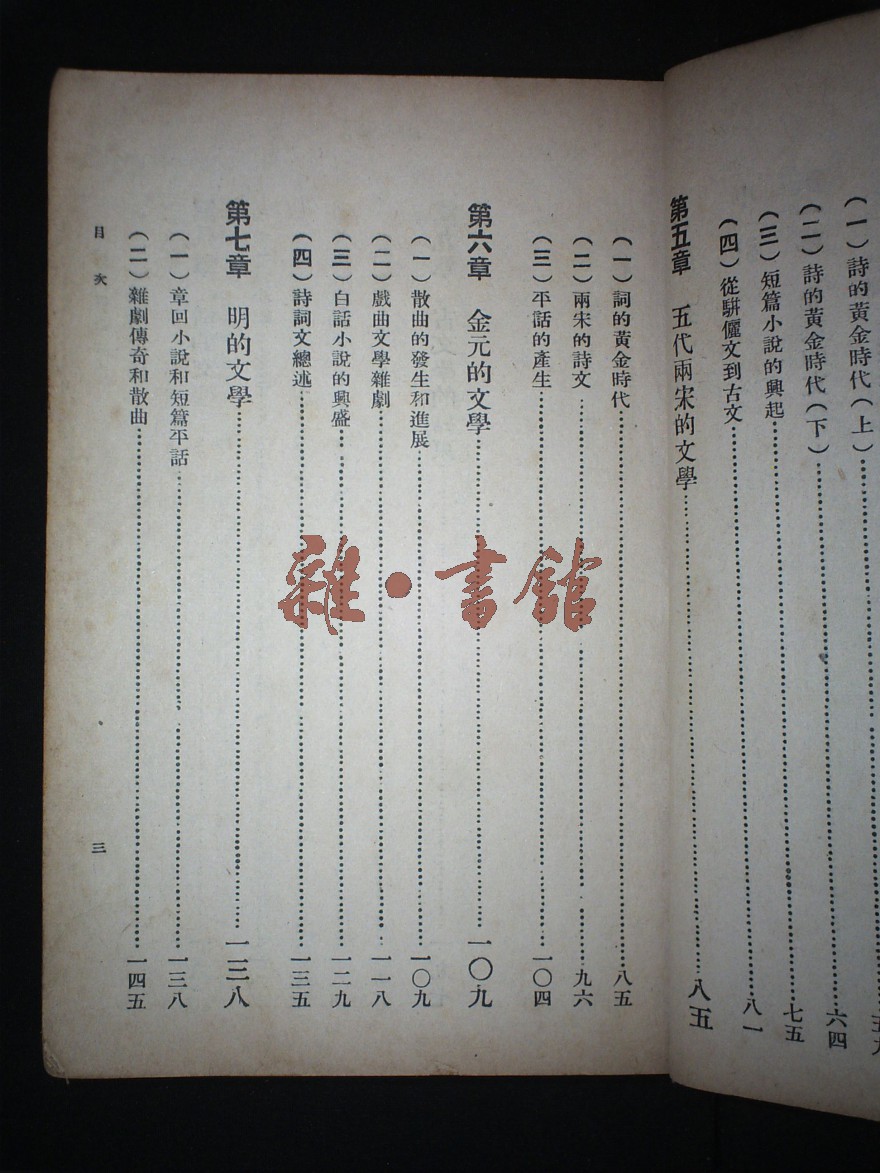 (一)詩的黃金時代(上)
(二)詩的黃金時代(下)……六四
(三)短篇小說的興起……七五
(四)從駢儷文到古文……八一
第五章 五代兩宋的文學……八五
(一)詞的黃金時代……八五
(二)兩宋的詩文……九六
(三)平話的產生……一〇四
第六章 金元的文學……一〇九
(一)散曲的發生和進展……一〇九
(二)戲曲文學雜劇……一一八
(三)白話小說的興盛……一二九
(四)詩詞文總述……一三五
第七章 明的文學……一三八
(一)章回小說和短篇平話……一三八
(二)雜劇傳奇和散曲……一四五
目次
三
雜·書館